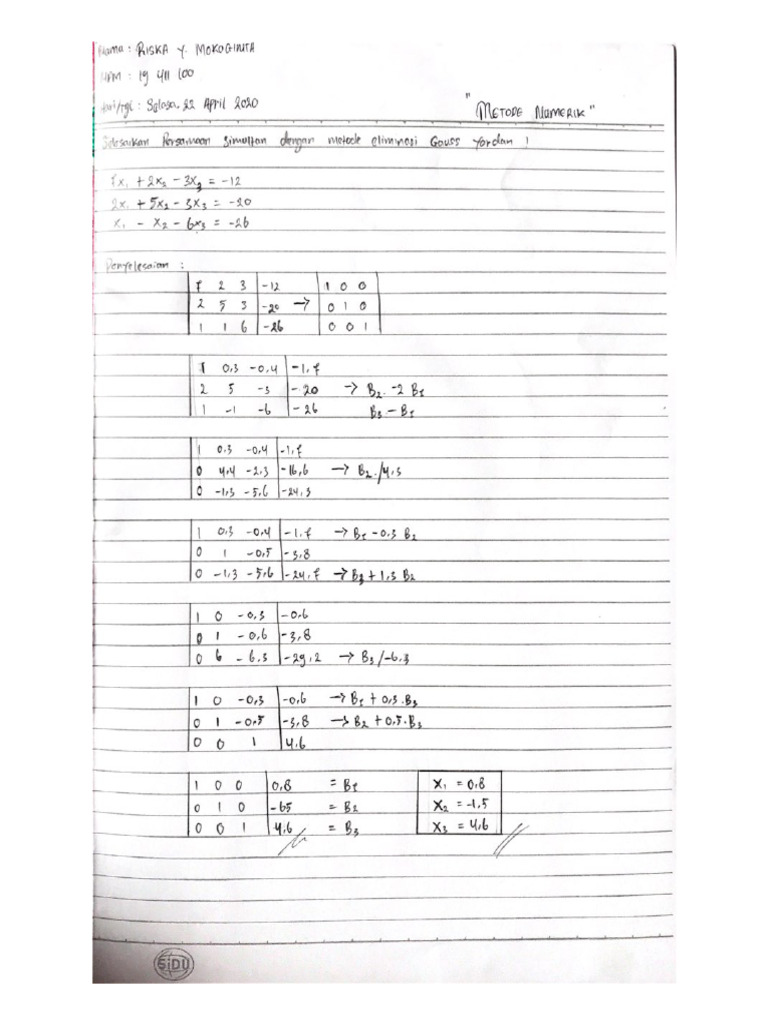 Nama : RISKA Y. MOKOGINTA
NPM : 19 411 100
Hari/tgl : Selasa, 22 April 2020
"METODE NUMERIK"
Selesaikan Persamaan Simultan dengan metode eliminasi Gauss Yordan !
7x₁ + 2x₂ - 3x₃ = -12
2x₁ + 5x₂ - 3x₃ = -20
x₁ - x₂ - 6x₃ = -26
Penyelesaian :
7 2 3 | -12 | 1 0 0
2 5 3 | -20 → | 0 1 0
1 1 6 | -26 | 0 0 1
1 0,3 -0,4 | -1,7
2 5 -3 | -20 → B₂ - 2 B₁
1 -1 -6 | -26 B₃ - B₁
1 0.3 -0,4 | -1,7
0 4,4 -2,3 | -16,6 → B₂ /4,3
0 -1,3 -5,6 | -24,3
1 0,3 -0,4 | -1,7 → B₁ - 0,3 B₂
0 1 -0,5 | -3,8
0 -1,3 -5,6 | -24,7 → B₃ + 1,3 B₂
1 0 -0,3 | -0,6
0 1 -0,6 | -3,8
0 6 -6.3 | -29,2 → B₃ /-6,3
1 0 -0,3 | -0,6 → B₁ + 0,3.B₃
0 1 -0,5 | -3,8 → B₂ + 0,5.B₃
0 0 1 | 4,6
1 0 0 | 0,8 = B₁ X₁ = 0,8
0 1 0 | -65 = B₂ X₂ = -1,5
0 0 1 | 4,6 = B₃ X₃ = 4,6
SiDU